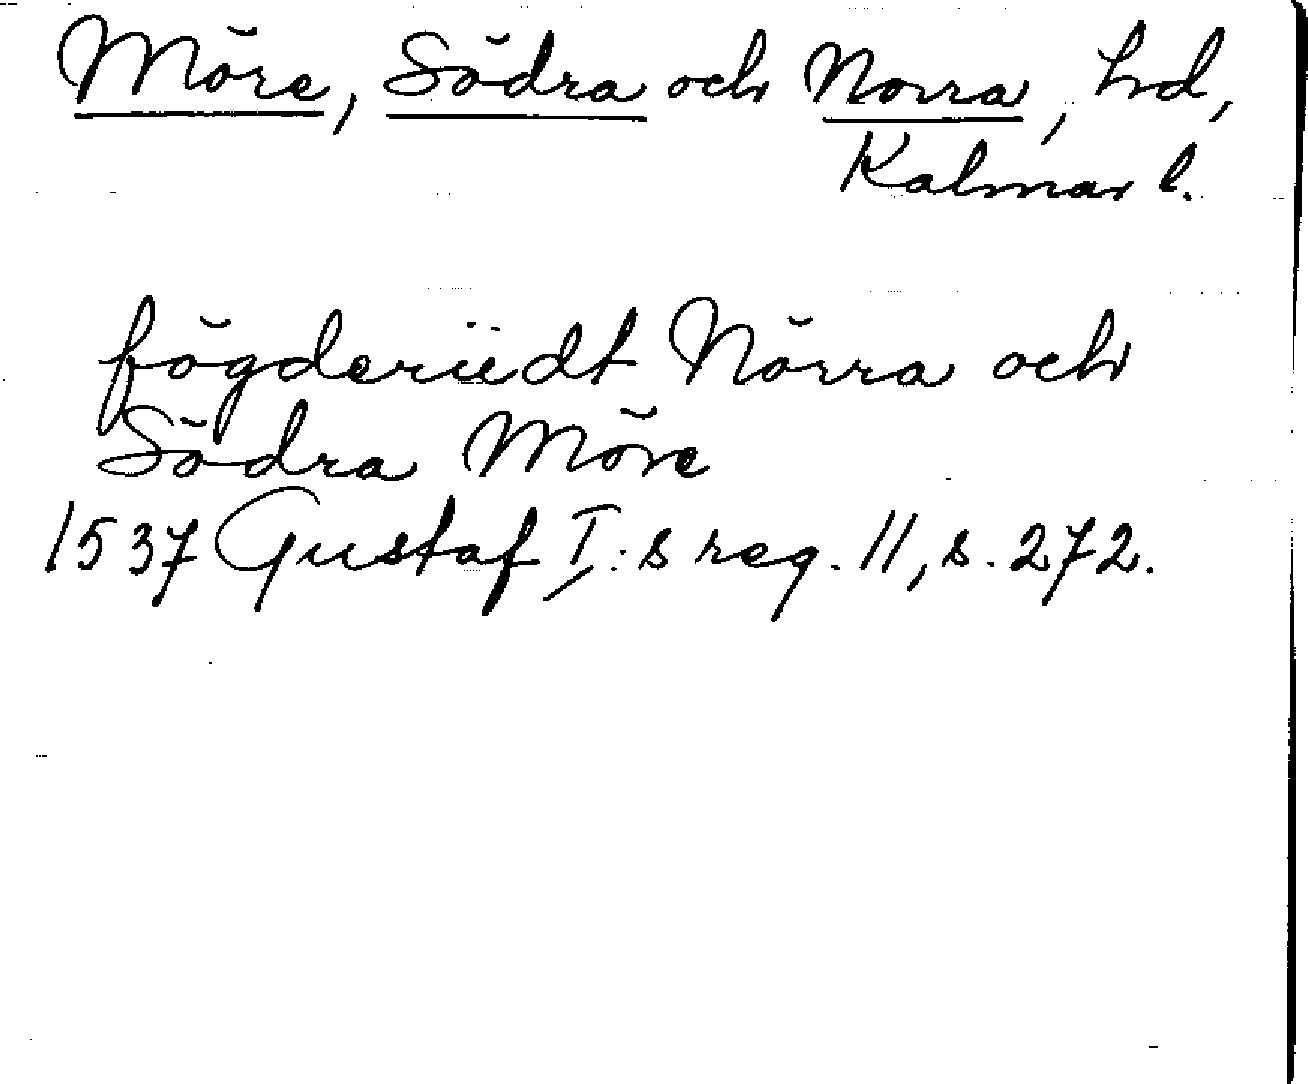 Möre, Södra och Norra, hd,
Kalmar l.
fögderiiedt Nörra och
Södra Möre
1537 Gustaf I:s reg. 11, s. 272.